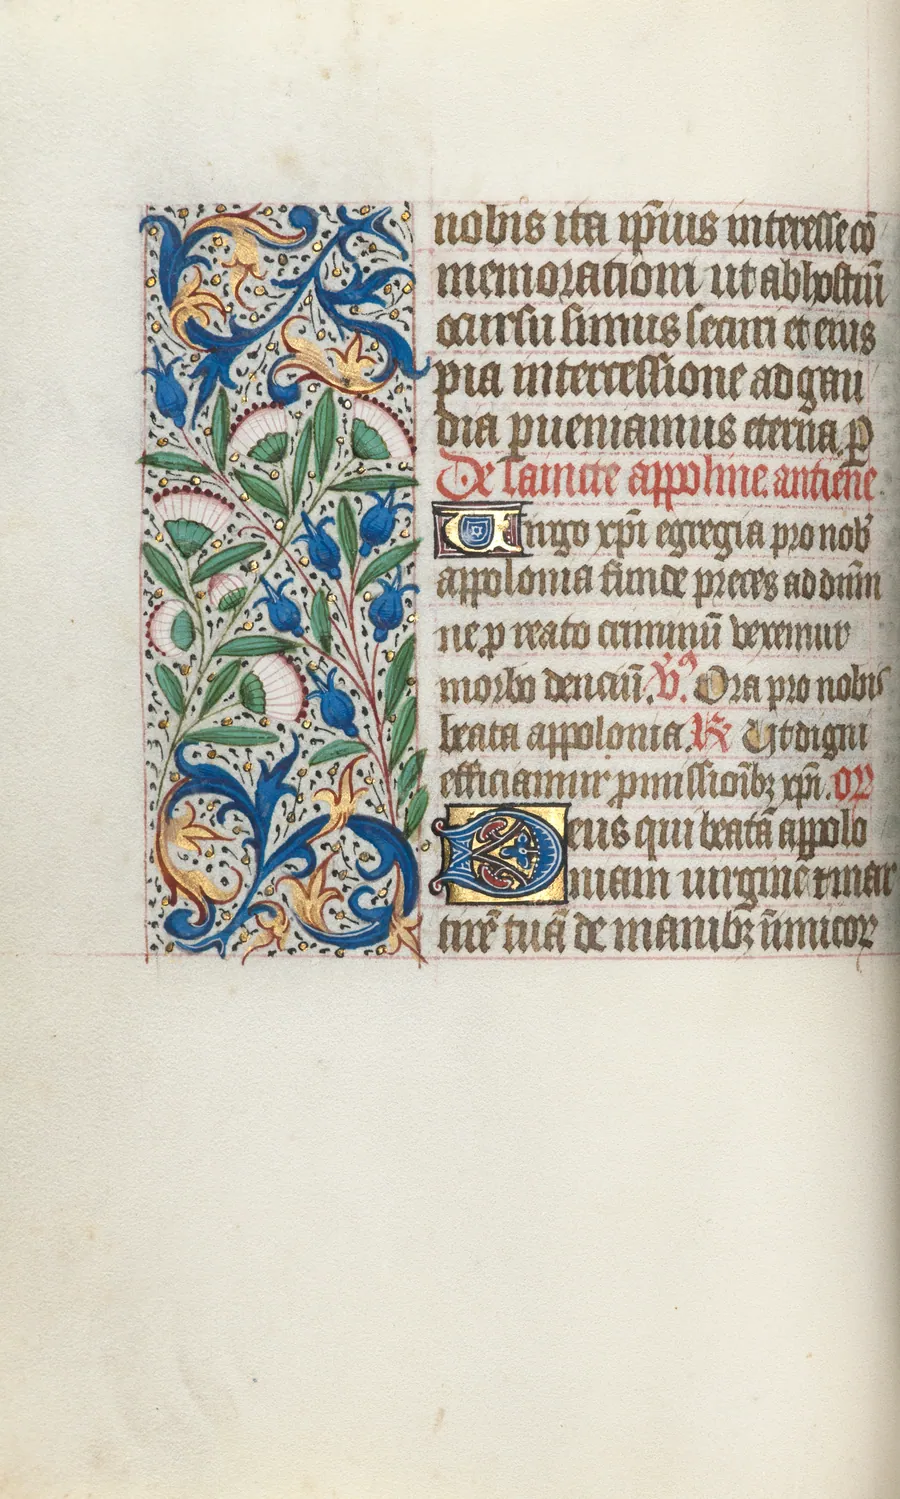 nobis ita ip̄ius interesse cō
memorationi ut ab hostiū
occursu simus securi et eius
pia intercessione ad gau
dia ꝑueniamus eterna. ꝑ
De saincte appoline. antiene.
Uirgo xp̄i egregia pro nob̄
appolonia funde preces ad dn̄m
ne ꝑ reato criminū vexemur
morbo denciū. V̄. Ora pro nobis
beata appolonia. R̄ Ut digni
efficiamur ꝓmissionibꝫ xp̄i. or̄
Deus qui beatā appolo
niam uirginē ⁊ mar
tirē tuā de manibꝫ īnimicoꝝ